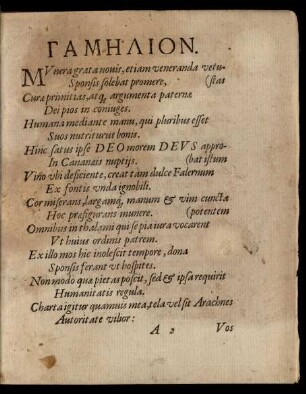 ΓΑΜΗΛΙΟΝ.
MVnera grata nouis, etiam veneranda vetu-
Sponsis solebat promere, (stas
Curæ primitias, atq, argumenta paternæ
Dei pios in coniuges.
Humana mediante manu, qui pluribus esset
Suos nutriturus bonis.
Hinc satus ipse DEO morem DEVS appro-
In Cananæis nuptijs. (bat istum
Vino vbi deficiente, creat tam dulce Falernum
Ex fontis vnda ignobili.
Cor miserans, largamq, manum & vim cuncta
Hoc præfigurans munere. (potentem
Omnibus in thalami qui se pia iura vocarent
Vt huius ordinis patrem.
Ex illo mos hic inolescit tempore, dona
Sponsis ferant vt hospites.
Non modo quæ pietas poscit, sed & ipsa requirit
Humanitatis regula.
Charta igitur quamuis mea, tela vel sit Arachnes
Autoritate vilior:
A 2 Vos